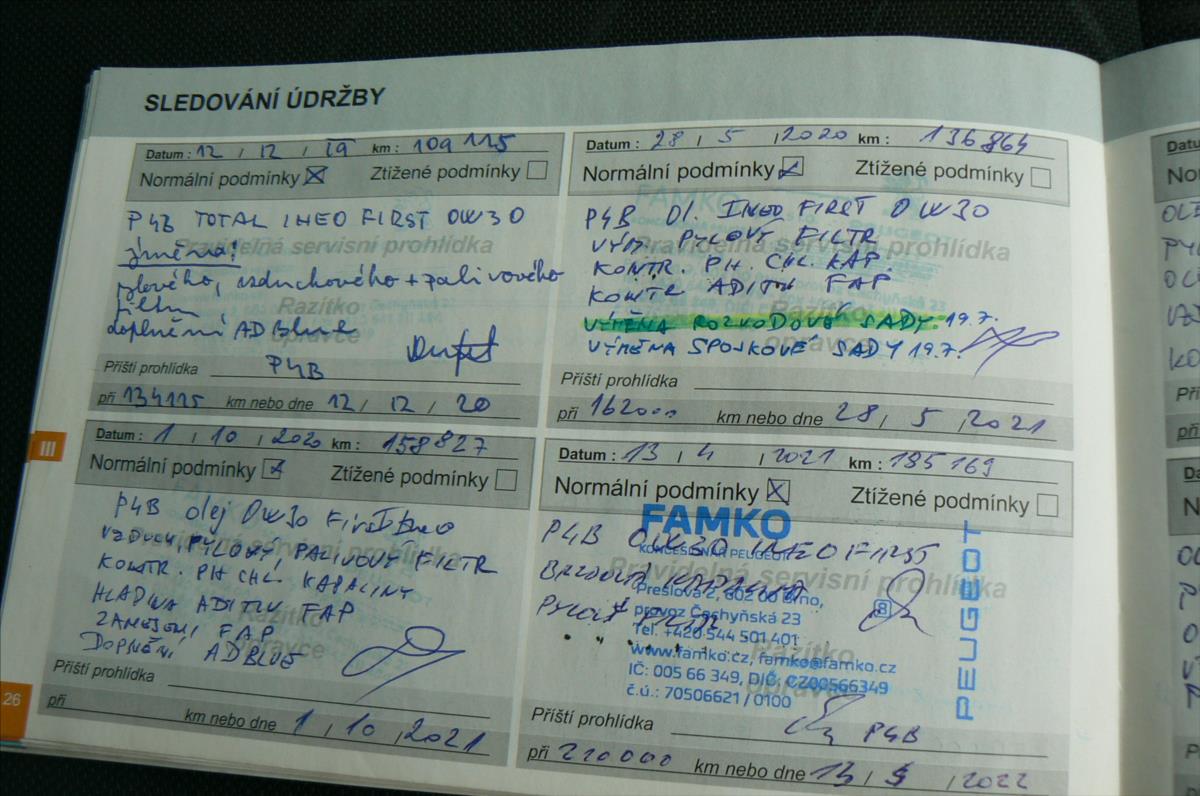 SLEDOVÁNÍ ÚDRŽBY
Datum : 12 / 12 / 19 km : 109 115
Normální podmínky ☒ Ztížené podmínky ☐
P4B TOTAL INEO FIRST 0W30
Pravidelná servisní prohlídka
výměna!
vzduchového + palivového
filtru
Razítko
doplnění AD Blue
opravce
Příští prohlídka P4B
při 134115 km nebo dne 12 / 12 / 20
Datum : 28 / 5 / 2020 km : 136864
Normální podmínky ☒ Ztížené podmínky ☐
P4B Ol. INEO FIRST 0W30
VÝM. PYLOVÝ FILTR
Pravidelná servisní prohlídka
KONTR. PH. CHL. KAP.
KONTR ADITIV FAP
Razítko
VÝMĚNA ROZVODOVÉ SADY 19.7.
opravce
VÝMĚNA SPOJKOVÉ SADY 19.7.
Příští prohlídka
při 162000 km nebo dne 28 / 5 / 2021
III
Datum : 1 / 10 / 2020 km : 158827
Normální podmínky ☒ Ztížené podmínky ☐
P4B olej 0W30 First Ineo
VZDUCH, PYLOVÝ, PALIVOVÝ FILTR
Pravidelná servisní prohlídka
KONTR. PH CHL. KAPALINY
HLADINA ADITIV FAP
Razítko
ZANESENÍ FAP
opravce
DOPLNĚNÍ ADBLUE
Příští prohlídka
při km nebo dne 1 / 10 / 2021
Datum : 13 / 4 / 2021 km : 185 169
Normální podmínky ☒ Ztížené podmínky ☐
FAMKO
P4B 0W30 INEO FIRST
KONCESIONÁŘ PEUGEOT
Pravidelná servisní prohlídka
BRZDOVÁ KAPALINA
Přešlova 2, 602 00 Brno,
PYLOVÝ FILTR
provoz Čechyňská 23
8
Tel. +420 544 501 401
Razítko
www.famko.cz, famko@famko.cz
IČ: 005 66 349, DIČ: CZ00566349
opravce
č.ú.: 70506621 / 0100
PEUGEOT
Příští prohlídka P4B
při 210000 km nebo dne 13 / / 2022
26